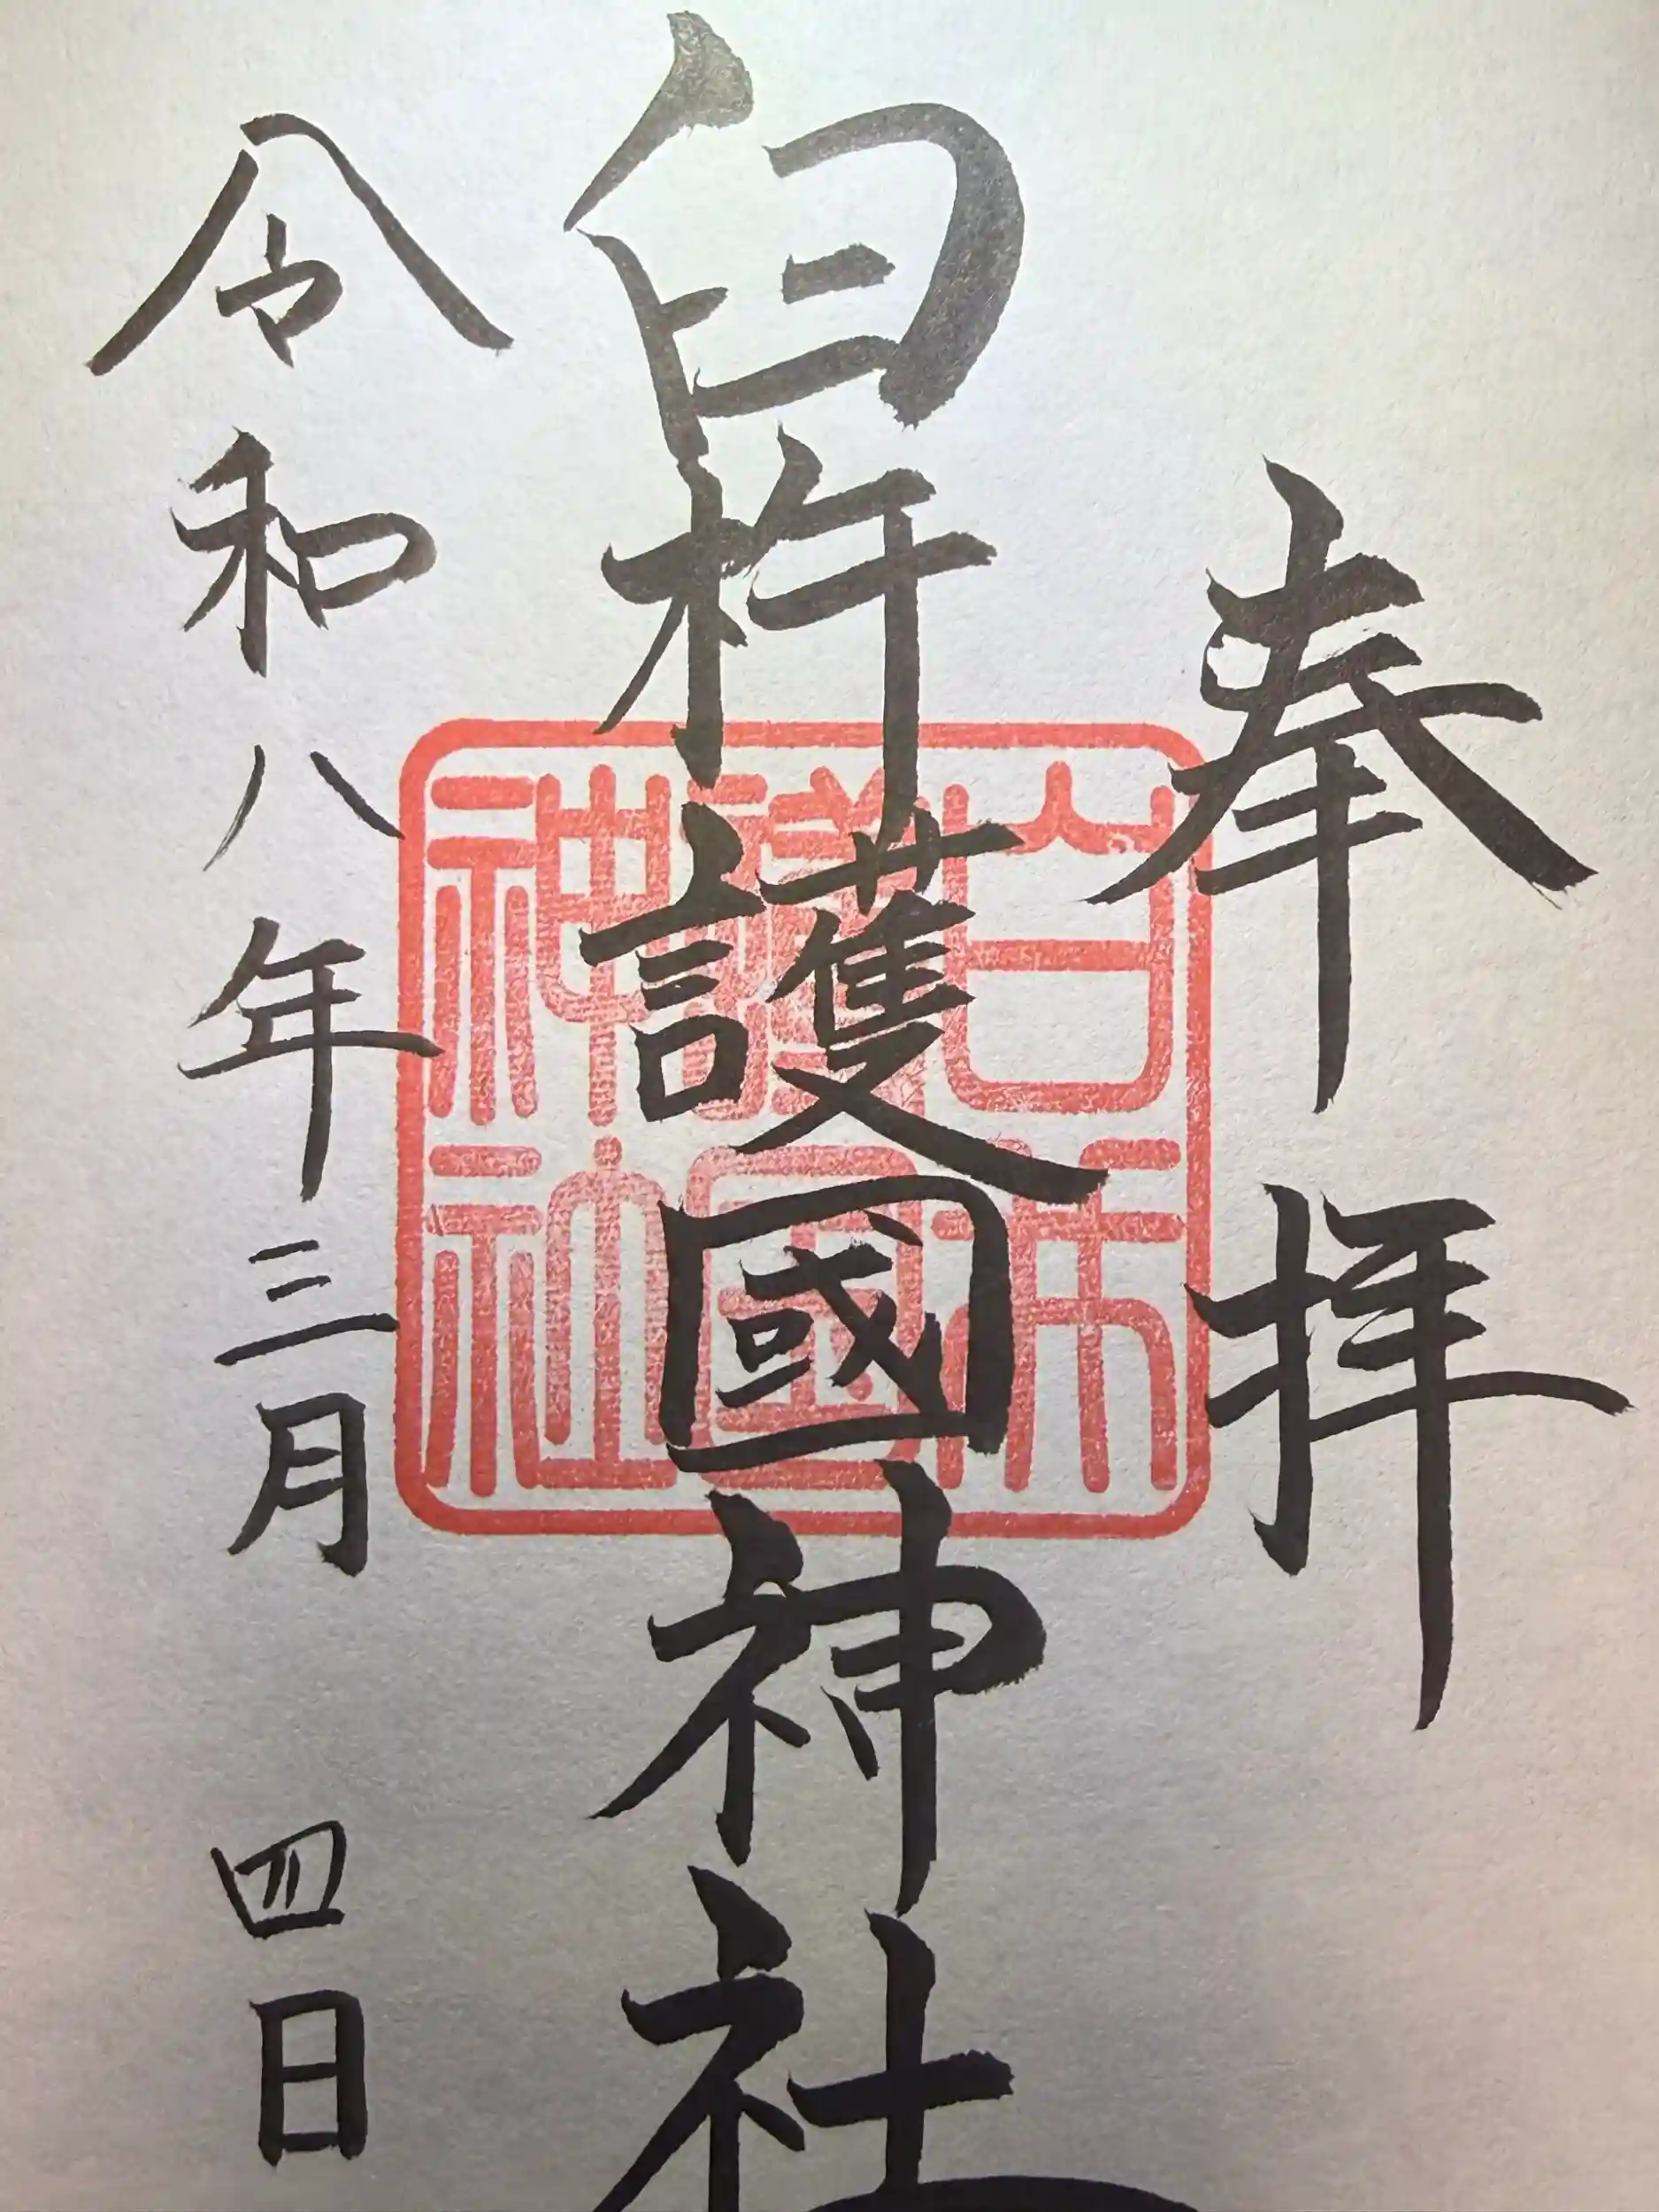 奉拝
臼杵護國神社
令和八年三月四日
臼杵
護國
神社